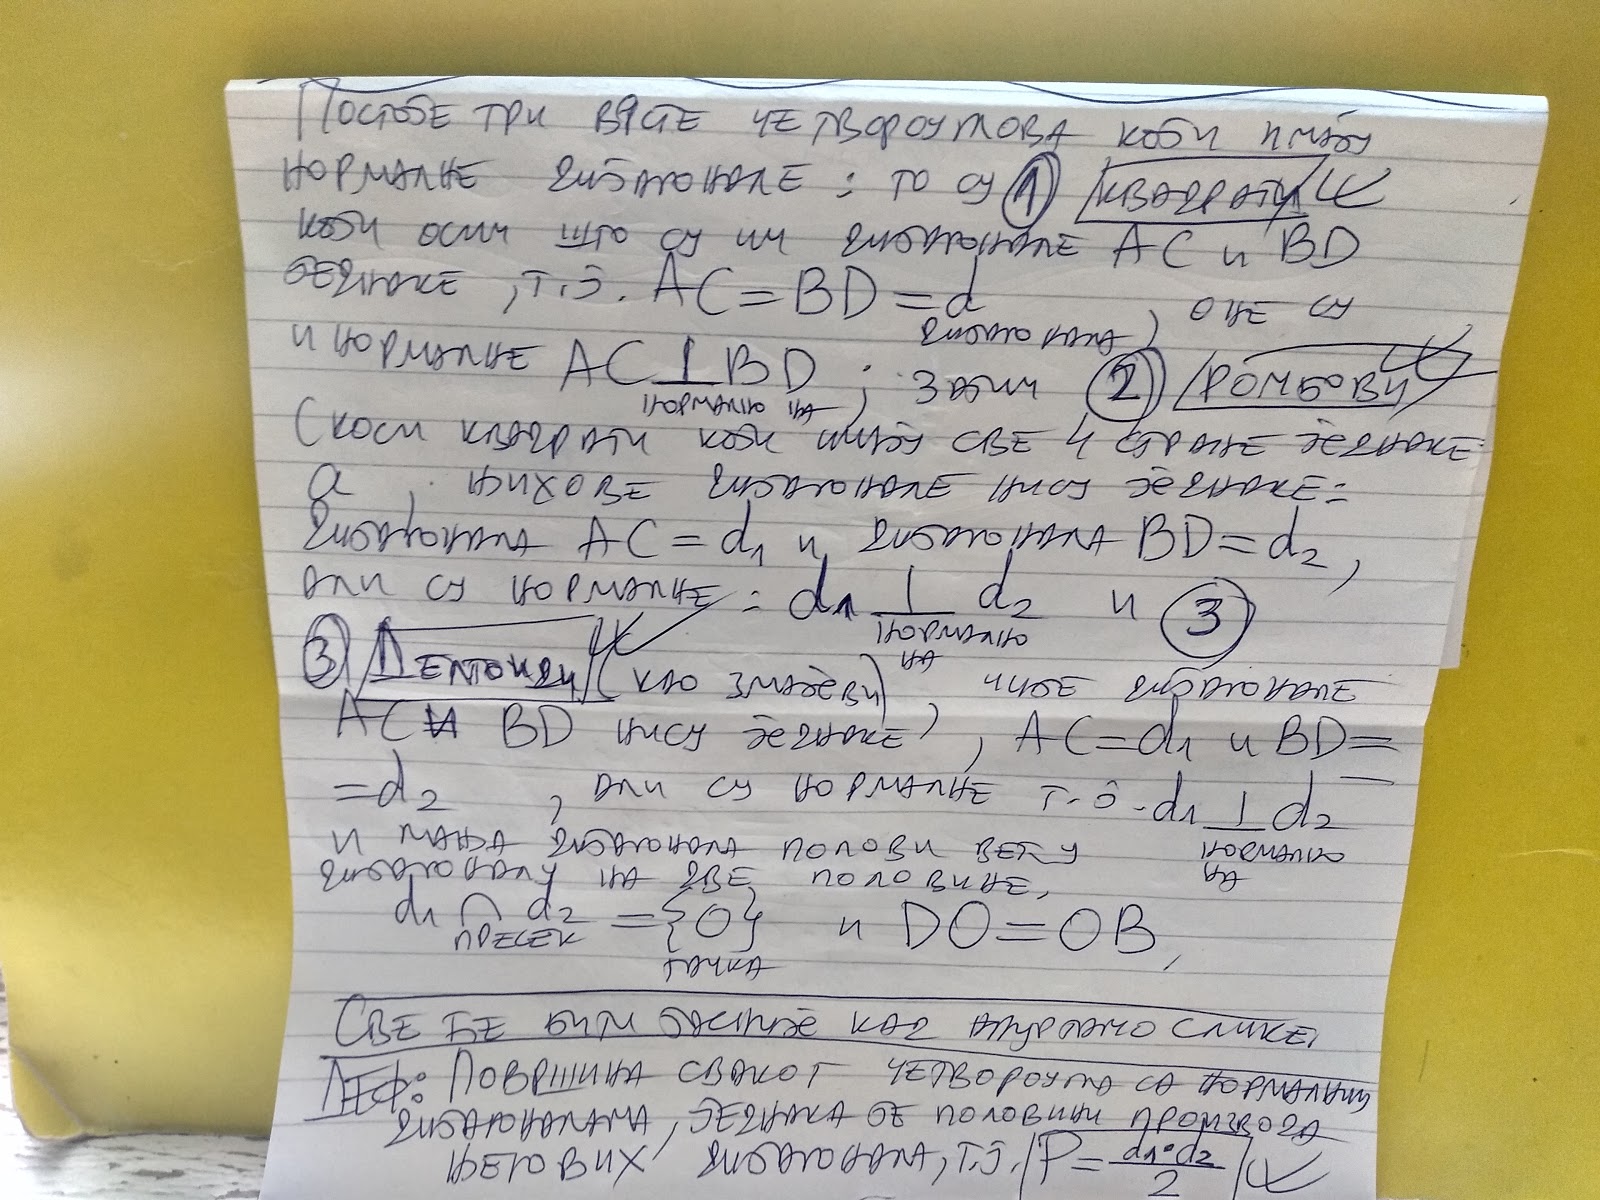 Постоје три врсте четвороуглова који имају
нормалне дијагонале: то су ① квадрати
који осим што су им дијагонале AC и BD
једнаке, т.ј. AC=BD=d, оне су
дијагонала
и нормалне AC ⊥ BD; затим ② ромбови
нормално на
(коси квадрати који имају све 4 стране једнаке
a, њихове дијагонале нису једнаке:
дијагонала AC=d₁ и дијагонала BD=d₂,
али су нормалне: d₁ ⊥ d₂ и ③
нормално
на
③ Делтоиди (као змајеви), чије дијагонале
AC и BD нису једнаке, AC=d₁ и BD=
=d₂, али су нормалне т.ј. d₁ ⊥ d₂
нормално
на
и мања дијагонала полови већу
дијагоналу на две половине,
d₁ ∩ d₂ = {O} и DO=OB,
пресек
тачка
Све ће бити јасније кад нацртамо слике,
Деф: Површина сваког четвороугла са нормалним
дијагоналама, једнака је половини производа
његових дијагонала, т.ј. P= d₁·d₂
2